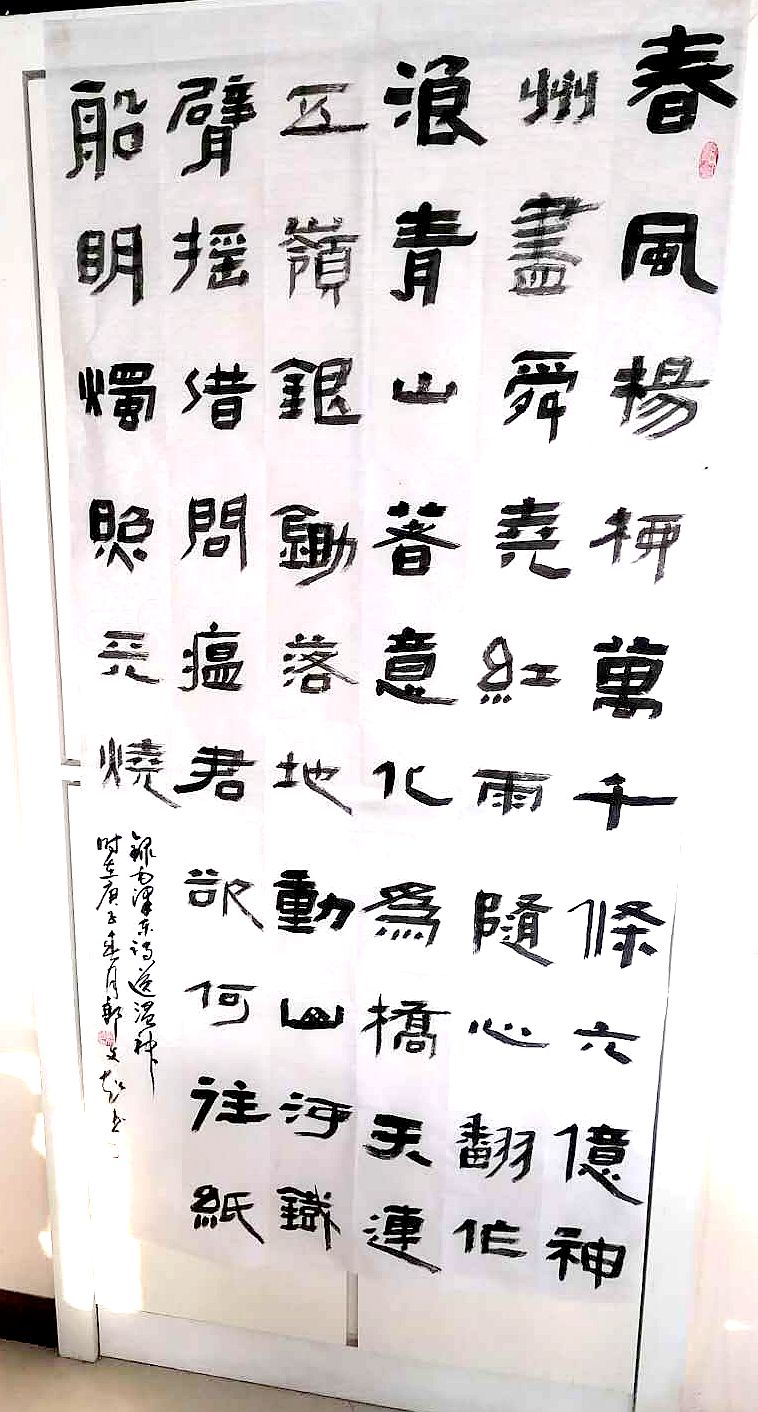 春風楊柳萬千條六億神
州盡舜堯紅雨隨心翻作
浪青山著意化爲橋天連
五嶺銀鋤落地動山河鐵
臂摇借問瘟君欲何往紙
船明燭照天燒
錄毛澤东詩送温神
时在庚子春月郭文书